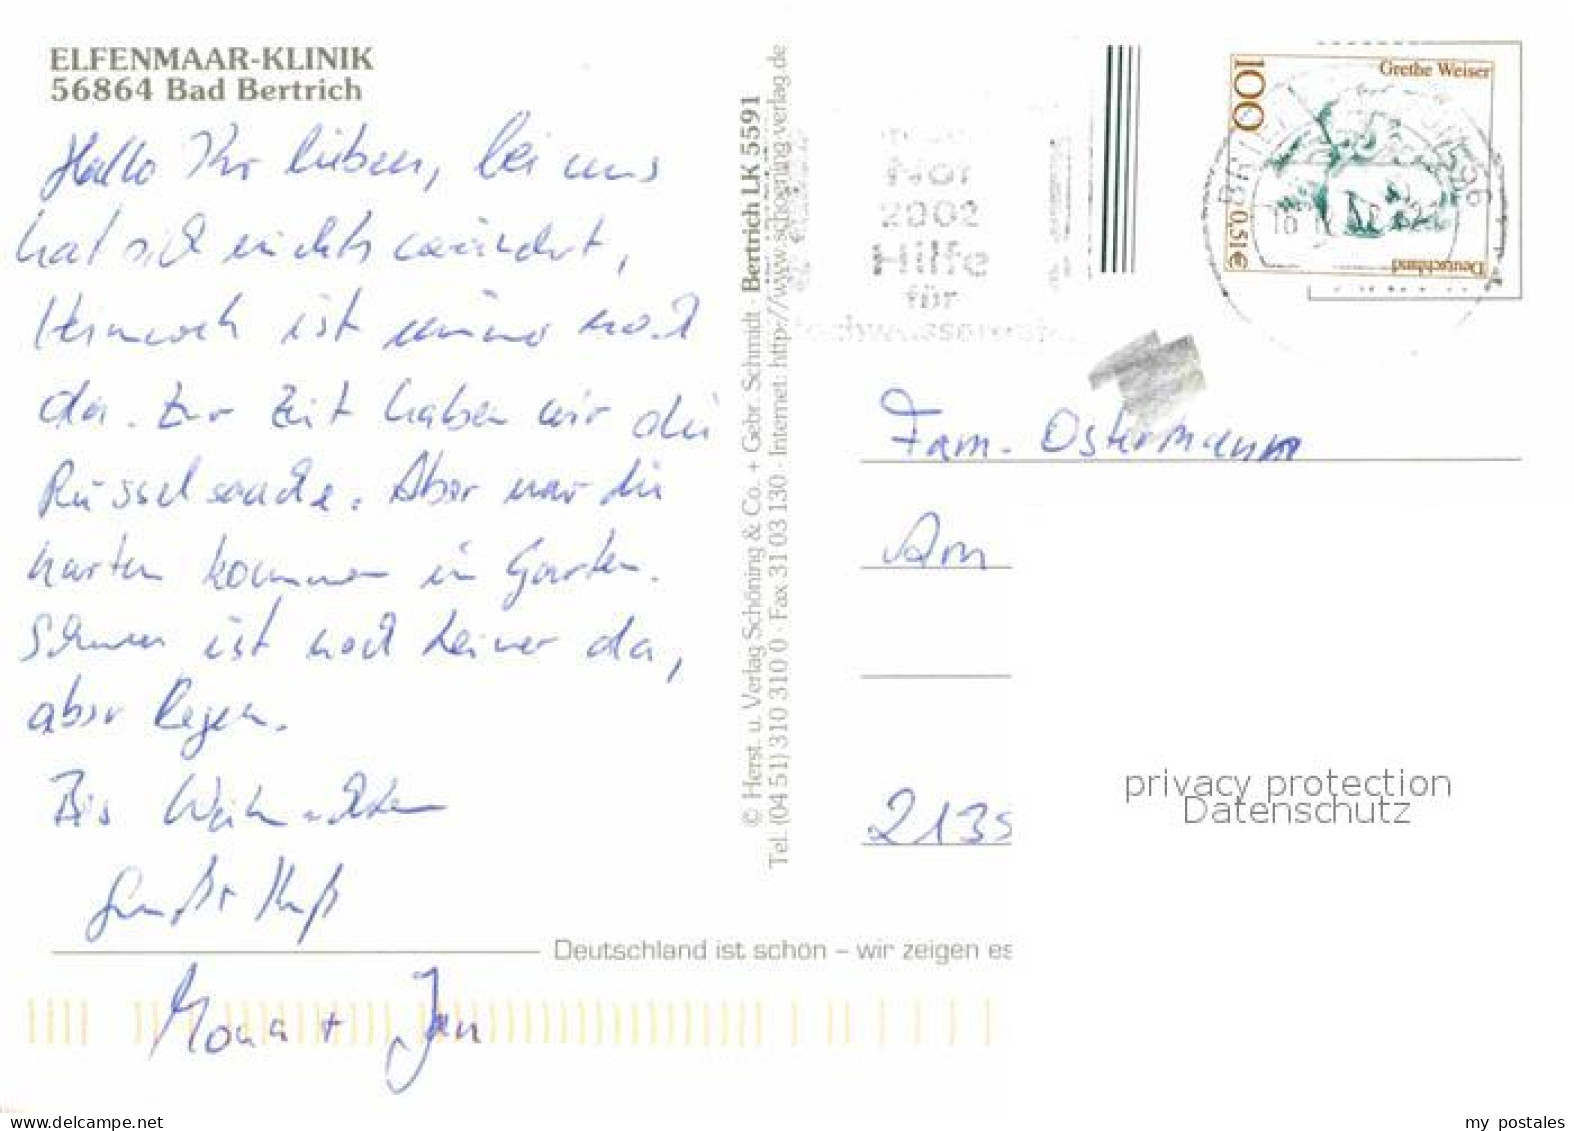 ELFENMAAR-KLINIK
56864 Bad Bertrich
Hallo Ihr lieben, bei uns
hat sich nichts verändert,
Heimweh ist immer noch
da. Zur Zeit haben wir die
Rüsselseuche. Aber nur die
harten kommen in Garten.
Schnee ist noch keiner da,
aber Regen.
Bis Weihnachten
Gruß + Kuß
Mona + Jan
© Herst. u. Verlag Schöning & Co. + Gebr. Schmidt · Bertrich LK 5591
Tel. (04 51) 310 310 0 · Fax 31 03 130 · Internet: http://www.schoening-verlag.de
Deutschland ist schön – wir zeigen es
2002
Hilfe
für
100
Grethe Weiser
0,51€
Deutschland
Fam. Ostermann
Am
2135
privacy protection
Datenschutz
my postales